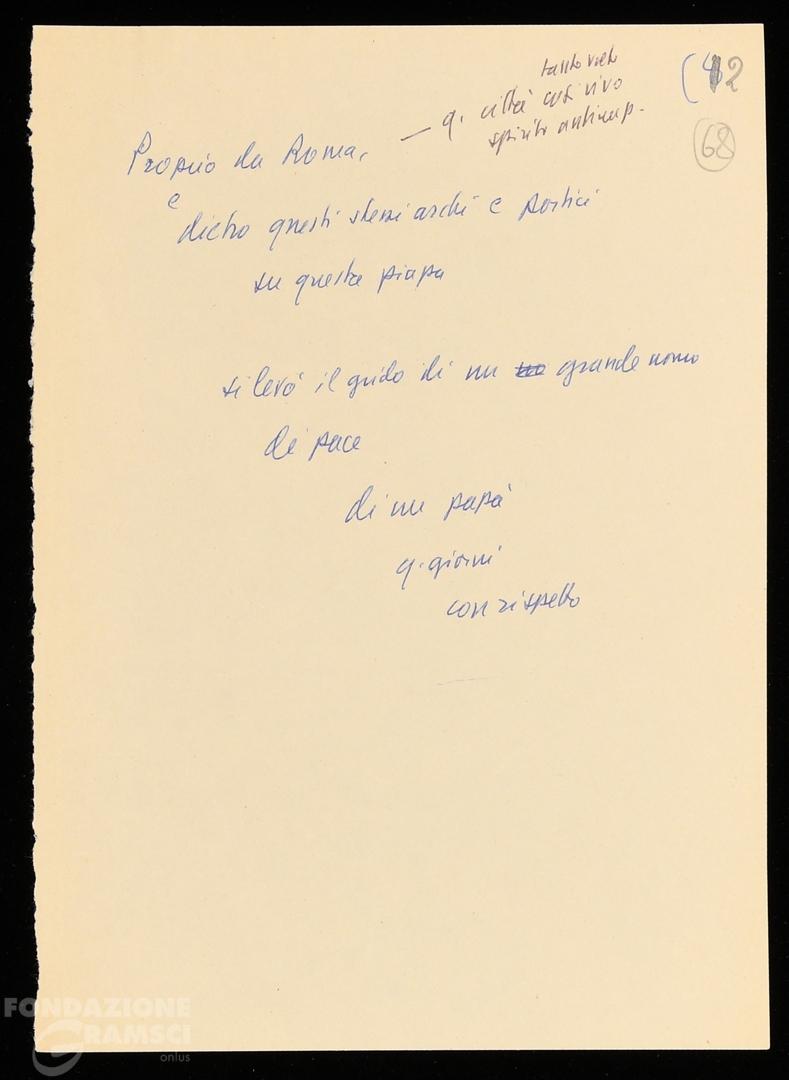 (12
68
Proprio da Roma, — q. città così vivo
spirito antimp.
e
dietro questi stessi archi e portici
su questa piazza
si levò il grido di un grande uomo
di pace
di un papa
q. giorni
con rispetto
FONDAZIONE
GRAMSCI
onlus